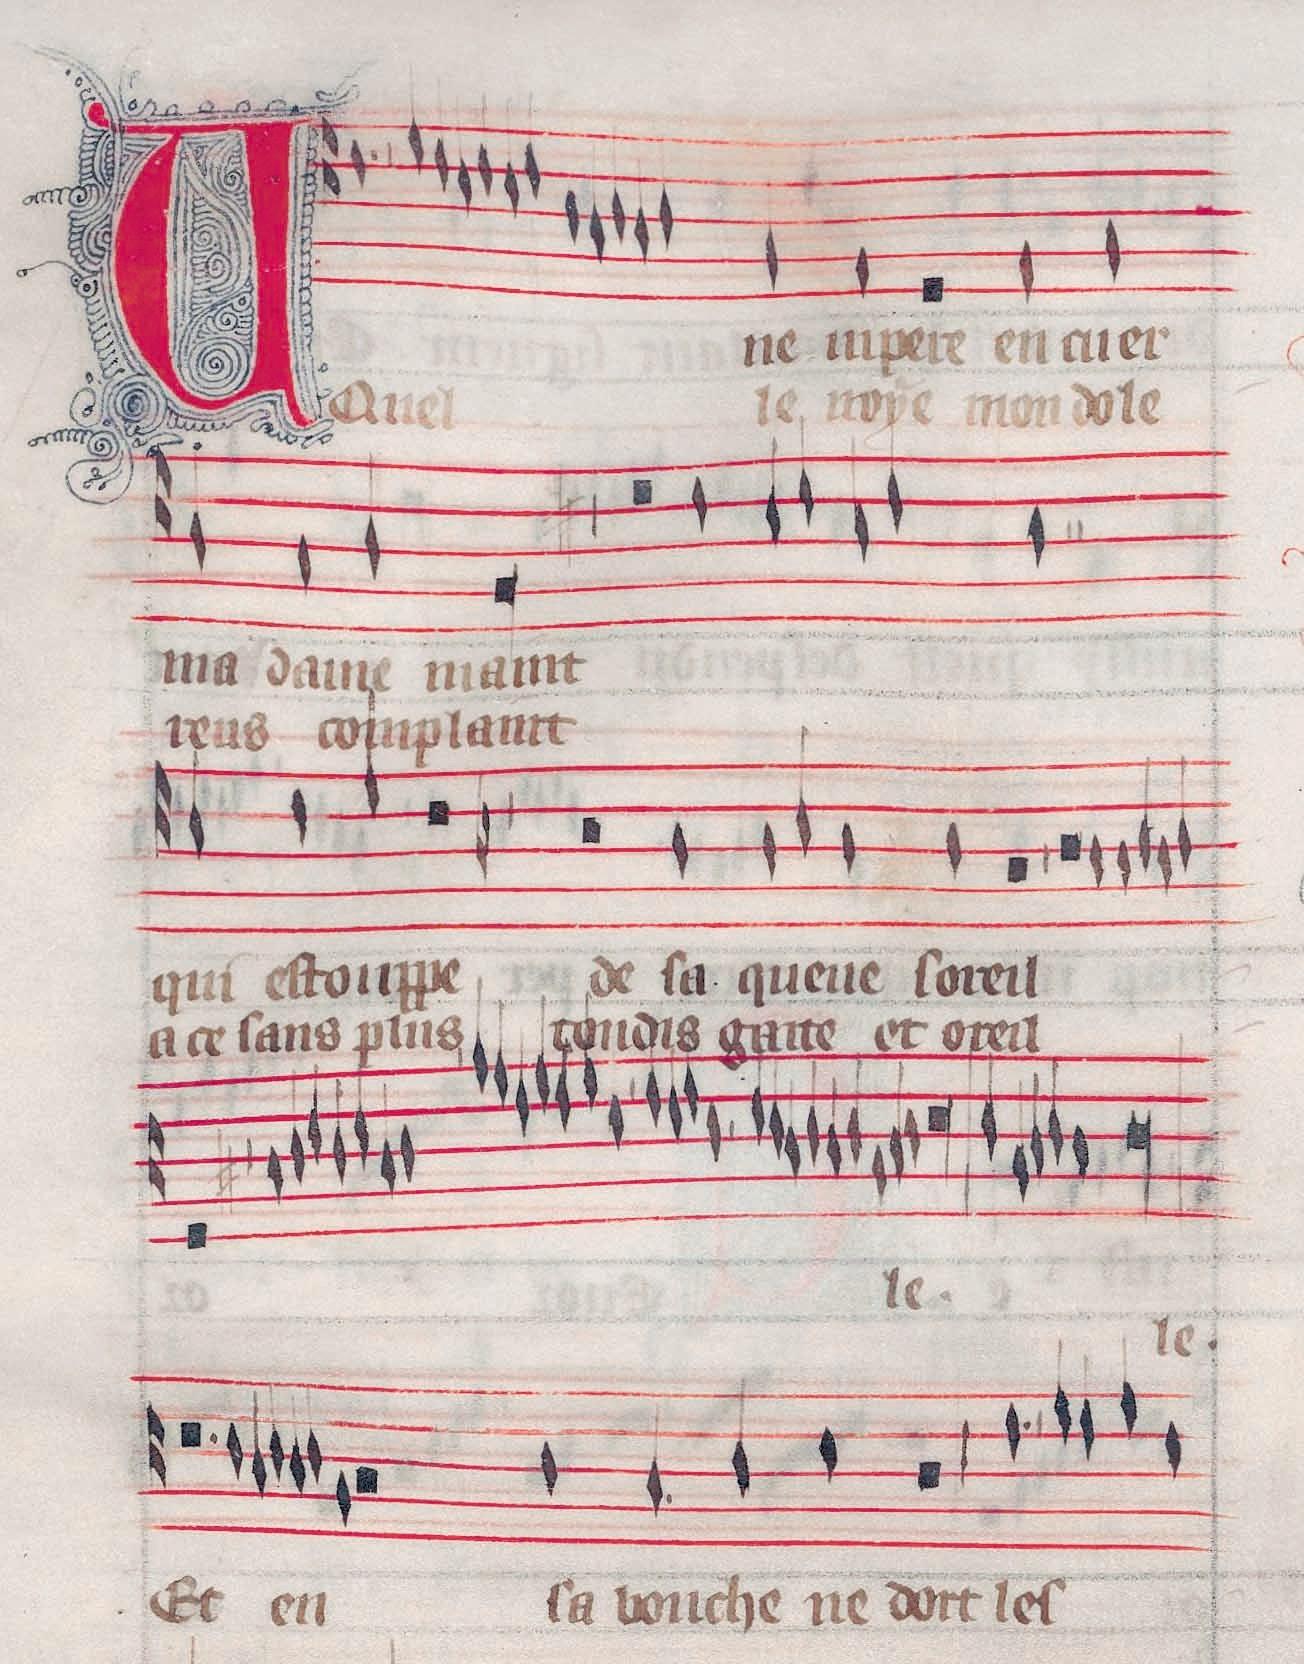 Une vipere en cuer
Quel le noye mon dole
ma dame maint
reus complaint
qui estouppe de sa queue soreil
a ce sans plus toudis gaite et oreil
le.
le.
Et en sa bouche ne dort les